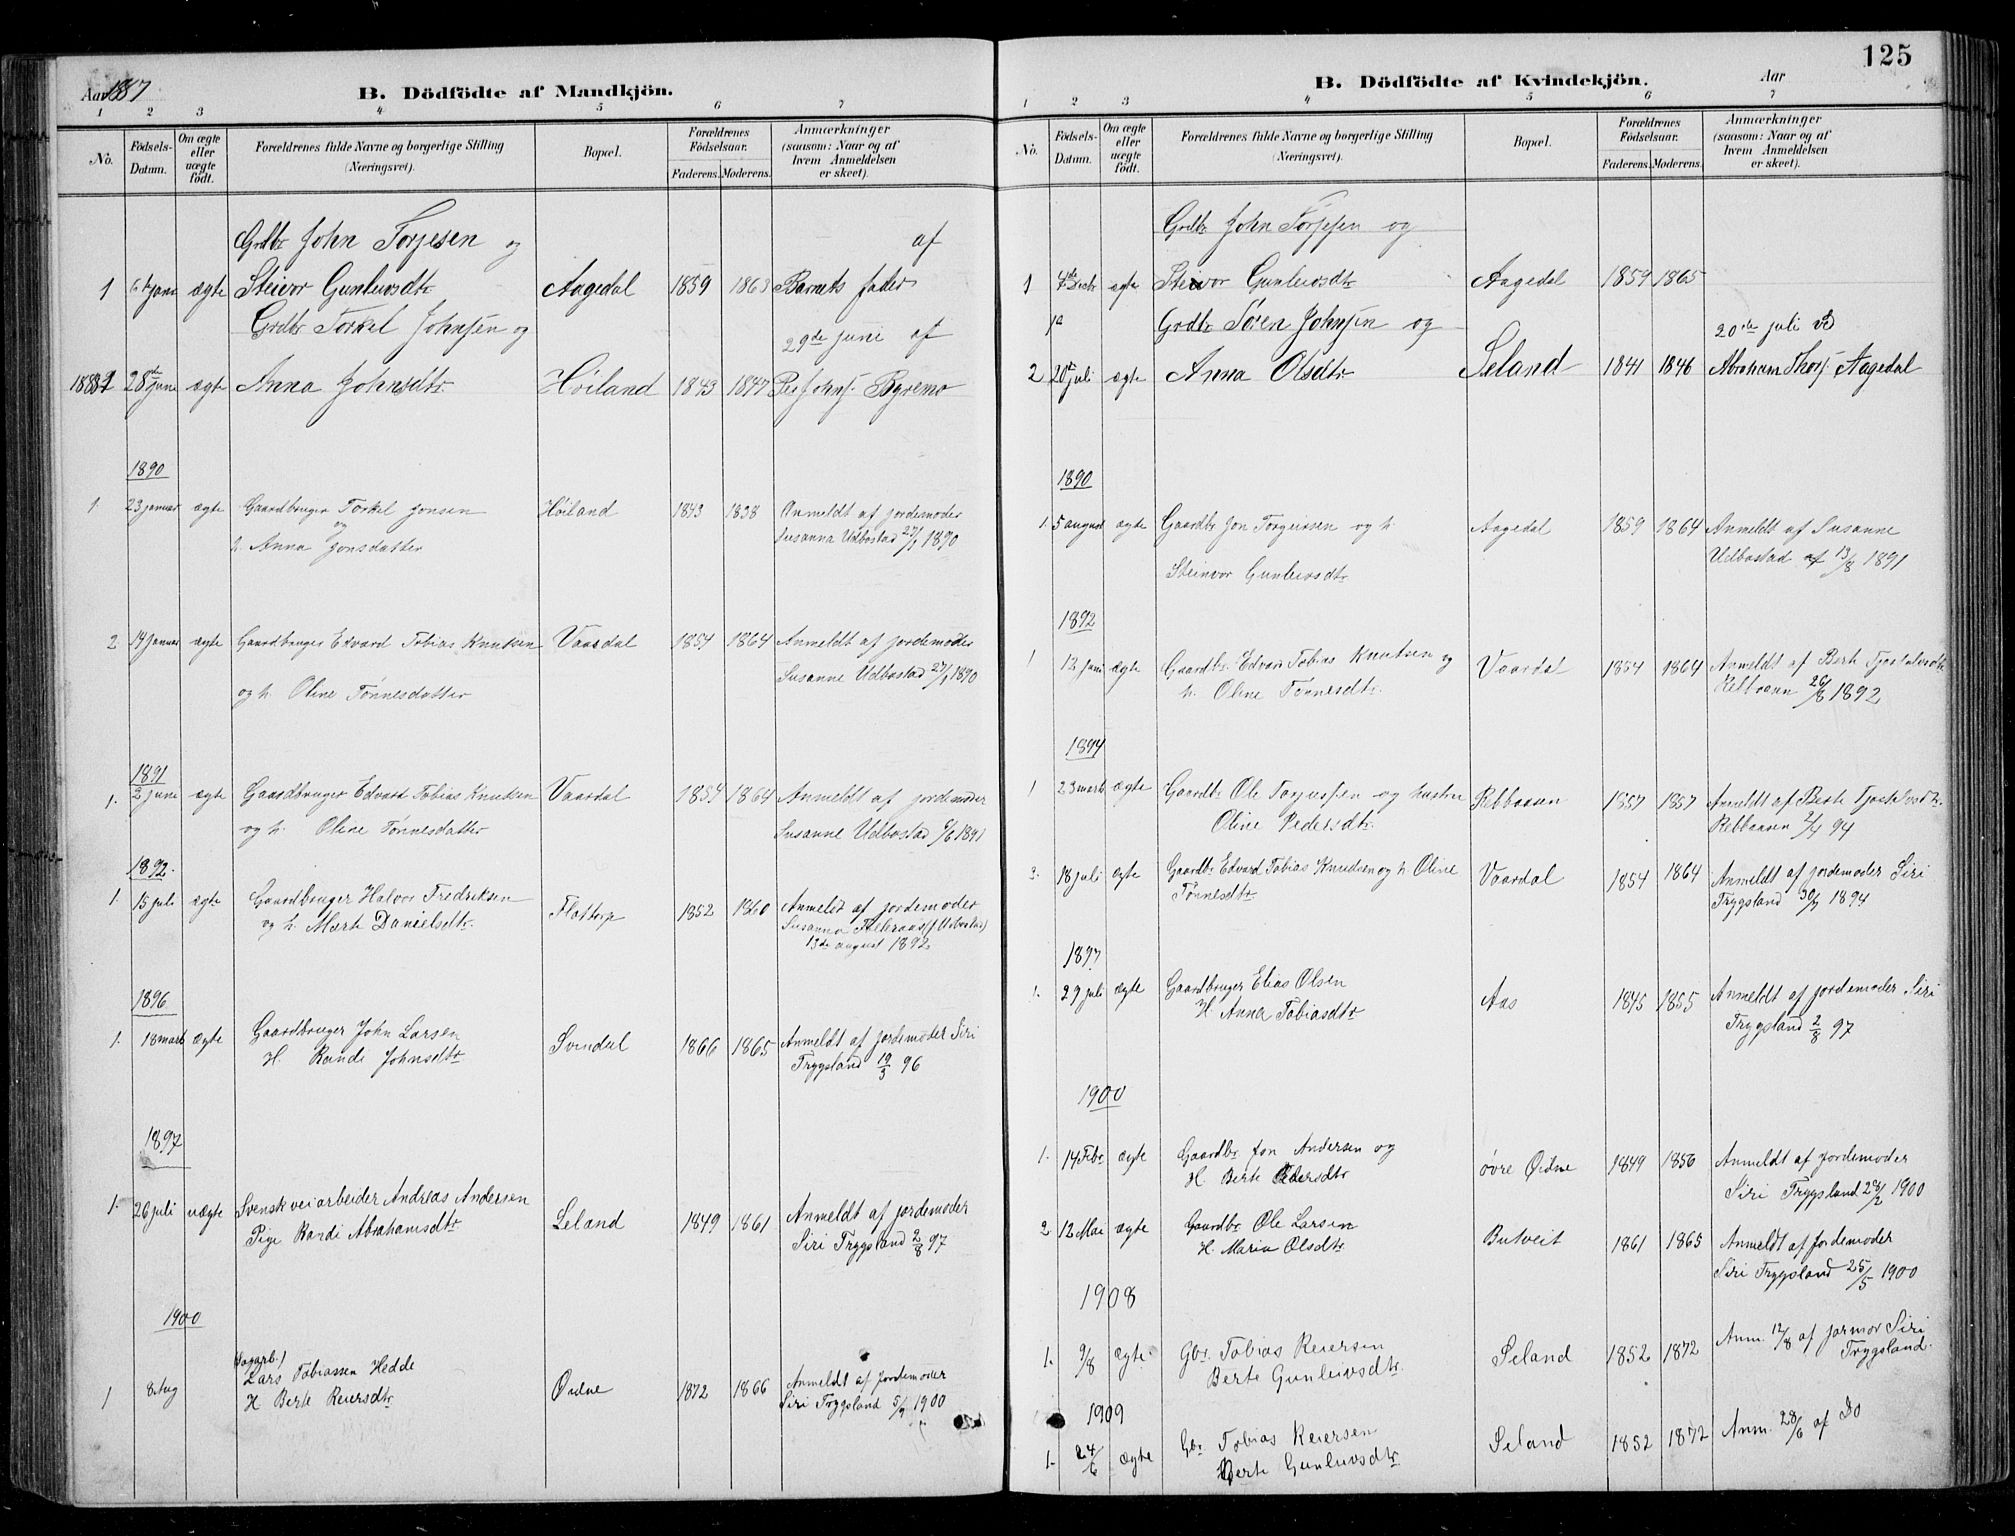 Aar 1887
B. Dödfödte af Mandkjön.
1 2 3 4 5 6 7
No. Födsels-Datum. Om ægte eller uægte födt. Forældrenes fulde Navne og borgerlige Stilling (Næringsvei). Bopæl. Forældrenes Födselsaar. Faderens. Moderens. Anmærkninger (saasom: Naar og af hvem Anmeldelsen er skeet).
Grdbr John Torjesen og af
1 6te janr ægte Steivor Gunleivsdtr Aagedal 1859 1863 Barnets fader
Grdbr Torkel Johnsen og 29de juni af
1889 28de june ægte Anna Johnsdtr Höiland 1843 1847 Per Johns. Byremo
1890
1 23 januar ægte Gaardbruger Torkel Jonsen Höiland 1843 1838 Anmeldt af jordemoder
og
h. Anna Jonsdatter Susanna Udbostad 27/1 1890
2 14 januar ægte Gaardbruger Edvard Tobias Knutsen Vaardal 1854 1864 Anmeldt af jordemoder
og h. Oline Tönnesdatter Susanne Udbostad 27/1 1890
1891
1. 2 june ægte Gaardbruger Edvard Tobias Knutsen Vaardal 1854 1864 Anmeldt af jordemoder
og h. Oline Tönnesdatter Susanne Udbostad 6/6 1891
1892.
1. 15 juli ægte Gaardbruger Halvor Fredriksen Flottorp 1852 1860 Anmeldt af jordemoder
og h. Marte Danielsdtr. Susanna (f. Udbostad)
13de august 1892
1896
1. 18 marts ægte Gaardbruger John Larsen Svindal 1866 1865 Anmeldt af jordemoder Siri
H. Randi Johnsdtr Trygsland 19/3 96
1897
1. 26 juli uægte Svensk veiarbeider Andreas Andersen Seland 1849 1861 Anmeldt af jordemoder
Pige Randi Abrahamsdtr Siri Trygsland 2/8 97
1900
(Sagarb.)
1 8 Aug Lars Tobiassen Hedde Öidne 1872 1866 Anmeldt af jordemoder
H. Berte Reiersdtr Siri Trygsland 5/9 1900
125
B. Dödfödte af Kvindekjön.
Aar
1 2 3 4 5 6 7
No. Födsels-Datum. Om ægte eller uægte födt. Forældrenes fulde Navne og borgerlige Stilling (Næringsvei). Bopæl. Forældrenes Födselsaar. Faderens. Moderens. Anmærkninger (saasom: Naar og af hvem Anmeldelsen er skeet).
Grdbr John Torjesen og
1 4de Decbr ægte Steivor Gunleivsdtr Aagedal 1859 1865
Grdbr Sören Johnsen og 20de juli ved
2 20de juli ægte Anna Olsdtr Seland 1841 1846 Abraham Thorj. Aagedal
1890
1. 5 august ægte Gaardbr Jon Torgeirsen og h. Aagedal 1859 1864 Anmeldt af Susanne
Steinvor Gunleivsdtr Udbostad af 13/8 1891
1892
1 13 juni ægte Gaardbr. Edvard Tobias Knutsen og Vaardal 1854 1864 Anmeldt af Berte Tjostolvsdtr
h. Oline Tönnesdtr. Rebbaasen 26/8 1892
1894
1 23 marts ægte Gaardbr Ole Torjussen og hustru Rebbaasen 1857 1857 Anmeldt af Berte Tjostolvsdtr.
Oline Pedersdtr. Rebbaasen 2/4 94
2. 18 juli ægte Gaardbr Edvard Tobias Knudsen og h. Oline Vaardal 1854 1864 Anmeldt af jordemoder Siri
Tönnesdtr Trygsland 30/7 1894
1897
1. 29 juli ægte Gaardbruger Elias Olsen Aas 1845 1855 Anmeldt af jordemoder Siri
H. Anna Tobiasdtr Trygsland 2/8 97
1900
1. 14 Febr ægte Gaardbr. Jon Andersen og övre Öidne 1849 1856 Anmeldt af jordemoder
H. Berte Pedersdtr Siri Trygsland 28/2 1900
2 12 Mai ægte Gaardbr Ole Larsen Butveit 1861 1865 Anmeldt af Jordemoder
H. Maria Olsdtr. Siri Trygsland 25/5 1900
1908
1. 9/8 ægte Gbr. Tobias Reiersen Seland 1852 1872 Anm. 12/8 af jormor Siri
Berte Gunleivsdtr. Trygsland.
1909
1. 24/6 ægte Gbr. Tobias Reiersen Seland 1852 1872 Anm. 28/6 af Do
Berte Gunleivsdtr